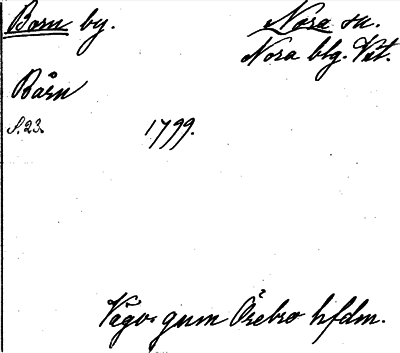 Born by. Nora sn.
Nora blg. Vst.
Bårn
S. 23. 1799.
Vägv. gnm Örebro hfdm.